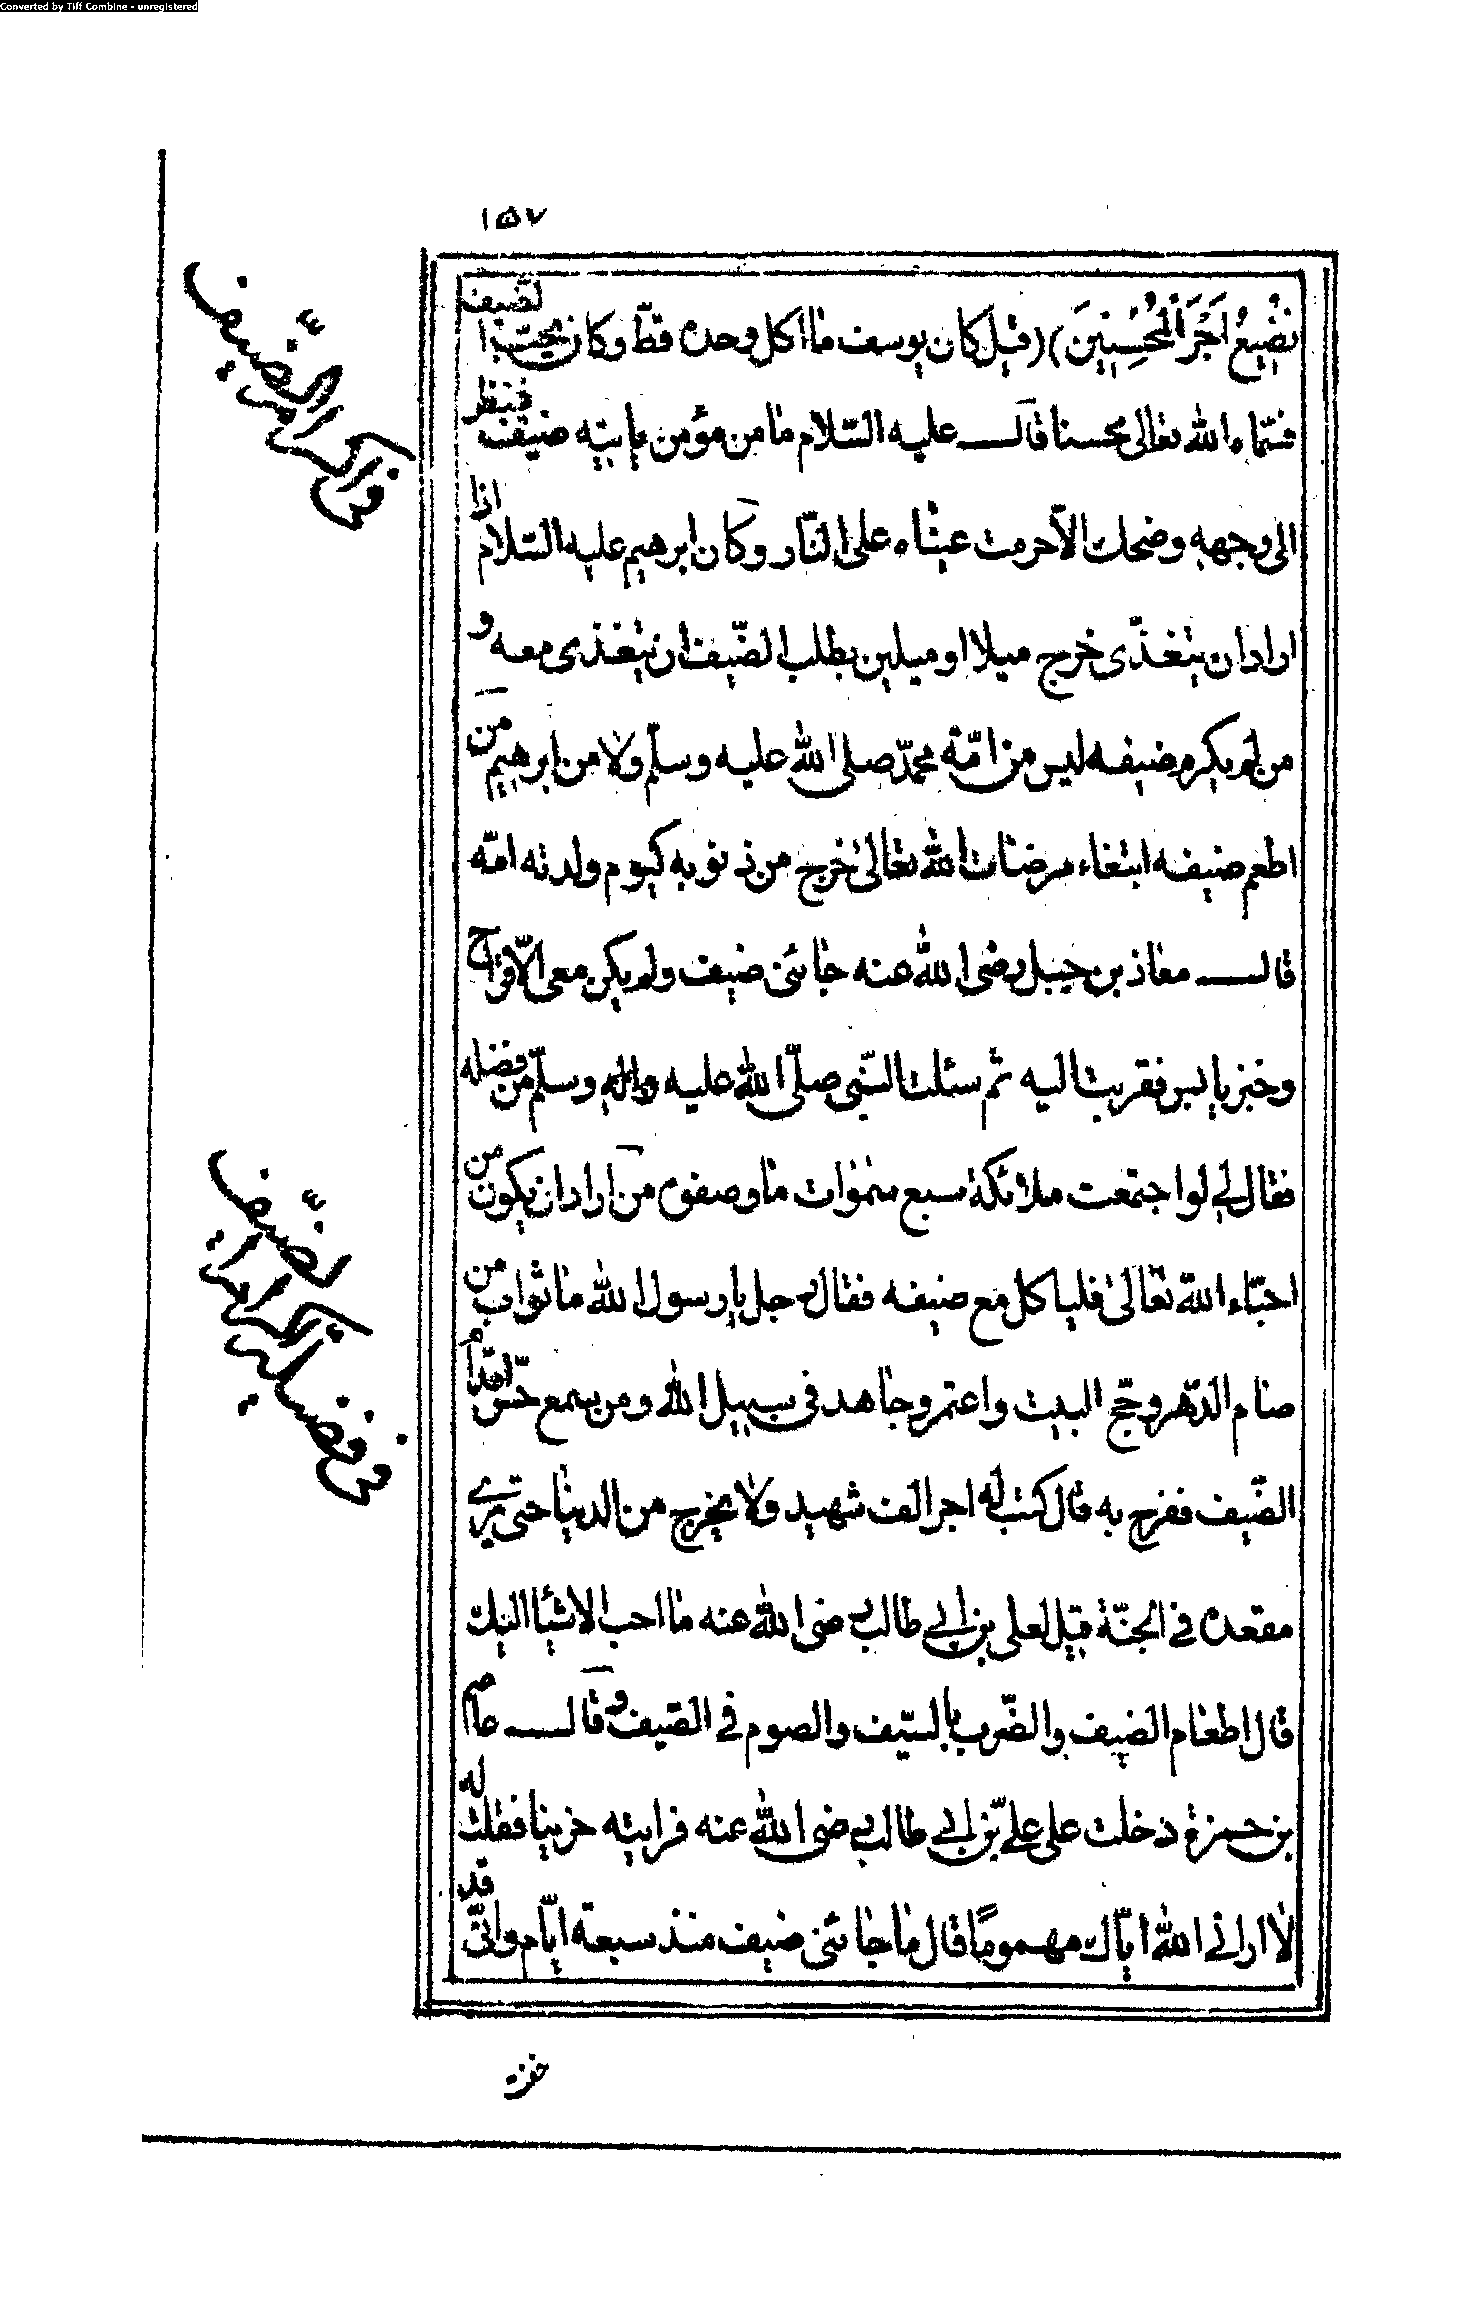 Converted by Tiff Combine - unregistered
١٥٧
نضيع اَجرَ المُحسِنينَ) (قيل كان يوسف ما اكل وحده قطّ وكان يحبّ الضّيف
فسمّاه الله تعالى محسنا قال عليه السّلام ما من مؤمن ياتيه ضيف فينظر
الى وجهه وضحك الّا حرمت عيناه على النّار وكان ابرهيم عليه السّلام اذا
اراد ان يتغذّى خرج ميلا او ميلين يطلب الضّيف ان يتغذى معه و
من لم يكرم ضيفه ليس من امّة محمّد صلى الله عليه وسلّم ولا من ابرهيم من
اطعم ضيفه ابتغاء مرضات الله تعالى خرج من ذنوبه كيوم ولدته امّه
قال معاذ بن جبل رضى الله عنه جائنى ضيف ولم يكن معى الّا
وخبز يابس فقربت اليه ثم سئلت النّبى صلّى الله عليه واله وسلّم من فضله
فقال لى لو اجتمعت ملائكة سبع سموات ما وصفوه من اراد ان يكون من
احبّاء الله تعالى فلياكل مع ضيفه فقال رجل يا رسول الله ما ثواب من
صام الدّهر وحجّ البيت واعتمر وجاهد فى سبيل الله ومن سمع حسّ اقدام
الضّيف ففرح به قال كتب له اجر الف شهيد ولا يخرج من الدنيا حتى يرى
مقعده فى الجنّة قيل لعلى بن ابى طالب رضى الله عنه ما احب الاشيا اليك
قال اطعام الضيف والضّرب بالسّيف والصوم فى الصّيف و قال عاصم
بن حمزة دخلت على علىّ بن ابى طالب رضى الله عنه فرايته حزينا فقلت له
لا ارانى الله ايّاك مهموماً قال ما جائنى ضيف منذ سبعة ايّام وانّى قد
خفت
فى اكرام الضّيف
فى فضيلة اكرام الضّيف